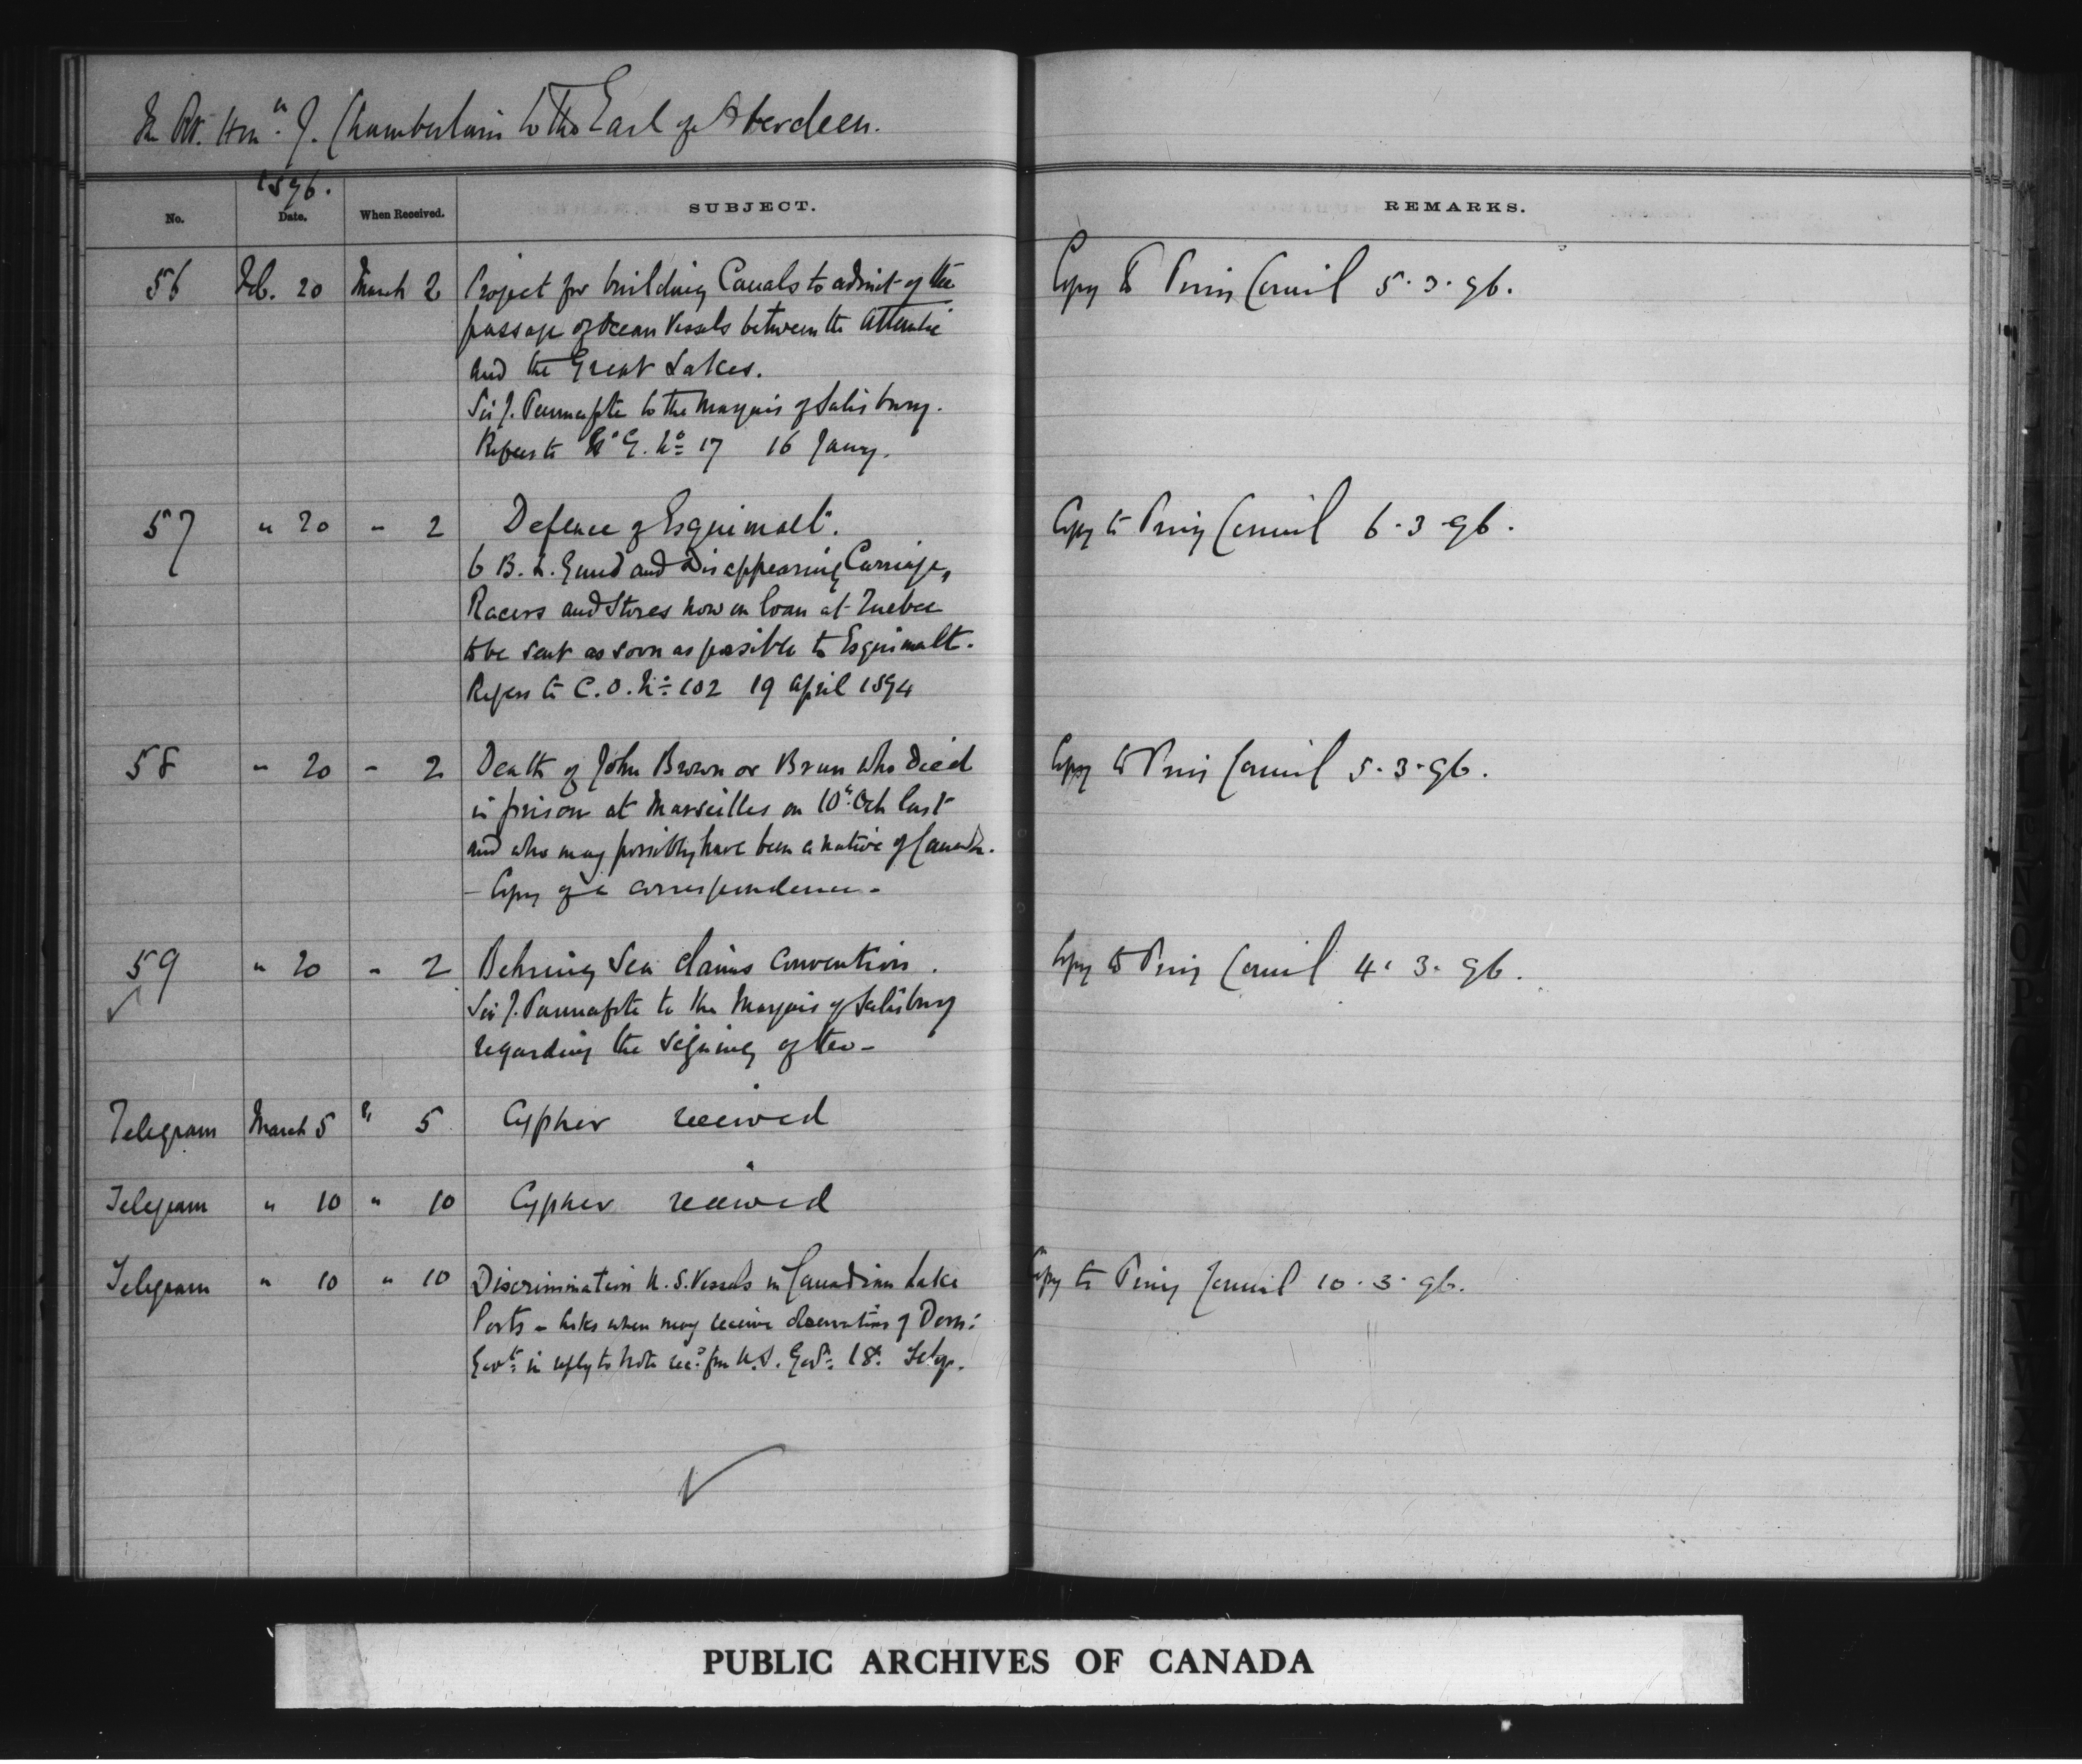 The Rt. Honble. J. Chamberlain to the Earl of Aberdeen.
1896.
No. Date. When Received. SUBJECT. REMARKS.
56 Feb. 20 March 2 Project for building Canals to admit of the Copy to Privy Council 5.3.96.
passage of Ocean Vessels between the Atlantic
and the Great Lakes.
Sir J. Pauncefote to the Marquis of Salisbury.
Refers to G. No 17 16 Jany.
57 " 20 " 2 Defence of Esquimalt. Copy to Privy Council 6.3.96.
6 B.L. and Disappearing Carriage,
Racers and Stores now on loan at Quebec
to be sent as soon as possible to Esquimalt.
Refers to C.O. No 102 19 April 1894
58 " 20 " 2 Death of John Brown or Brun who died Copy to Privy Council 5.3.96.
in prison at Marseilles on 10th Oct last
and who may possibly have been a native of Canada.
- Copy of a correspondence -
59 " 20 " 2 Behring Sea Claims Convention. Copy to Privy Council 4.3.96.
Sir J. Pauncefote to the Marquis of Salisbury
regarding the signing of the -
Telegram March 5 " 5 Cypher received
Telegram " 10 " 10 Cypher received
Telegram " 10 " 10 Discrimination U.S. Vessels in Canadian Lake Copy to Privy Council 10.3.96.
Ports - Asks when may receive observations of Dom:
Govt: in reply to note recd from U.S. Govt: 18th
PUBLIC ARCHIVES OF CANADA